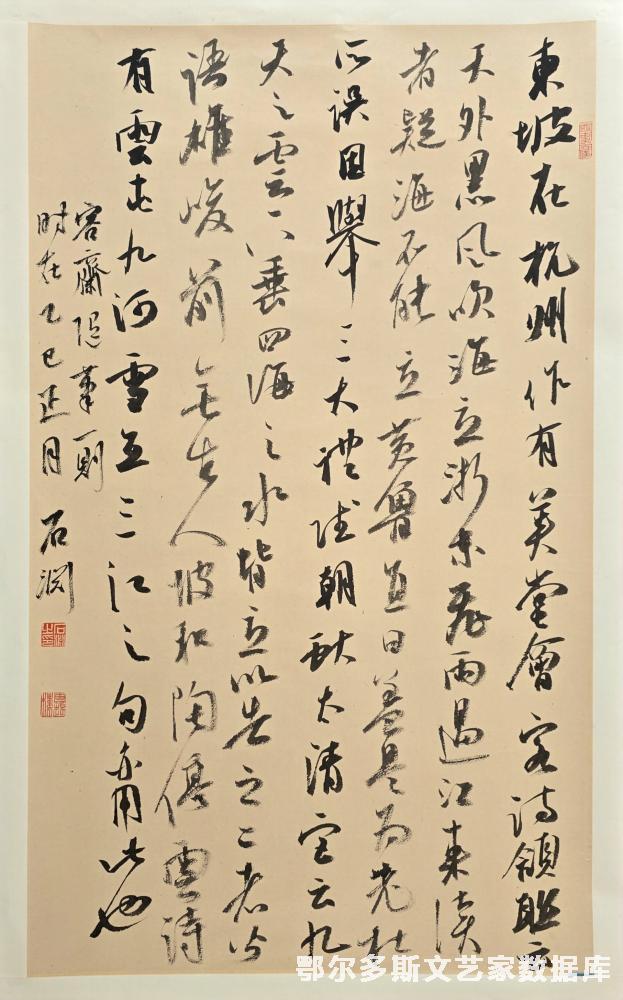 東坡在杭州作有美堂會客詩頷聯云
天外黑風吹海立浙東飛雨過江來讀
者疑海不能立黄魯直曰蓋是為老杜
所誤因舉三大禮賦朝献太清宫云九
天之雲下垂四海之水皆立以告之二者
語雄峻前無古人坡和陶停雲詩
有雲屯九河雪立三江之句亦用此也
容齋隨筆一則
時在乙巳正月 石
鄂尔多斯文艺家数据库